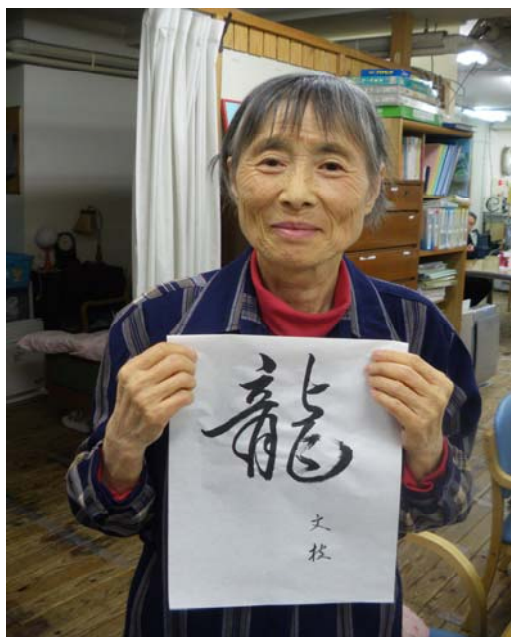 龍
文枝